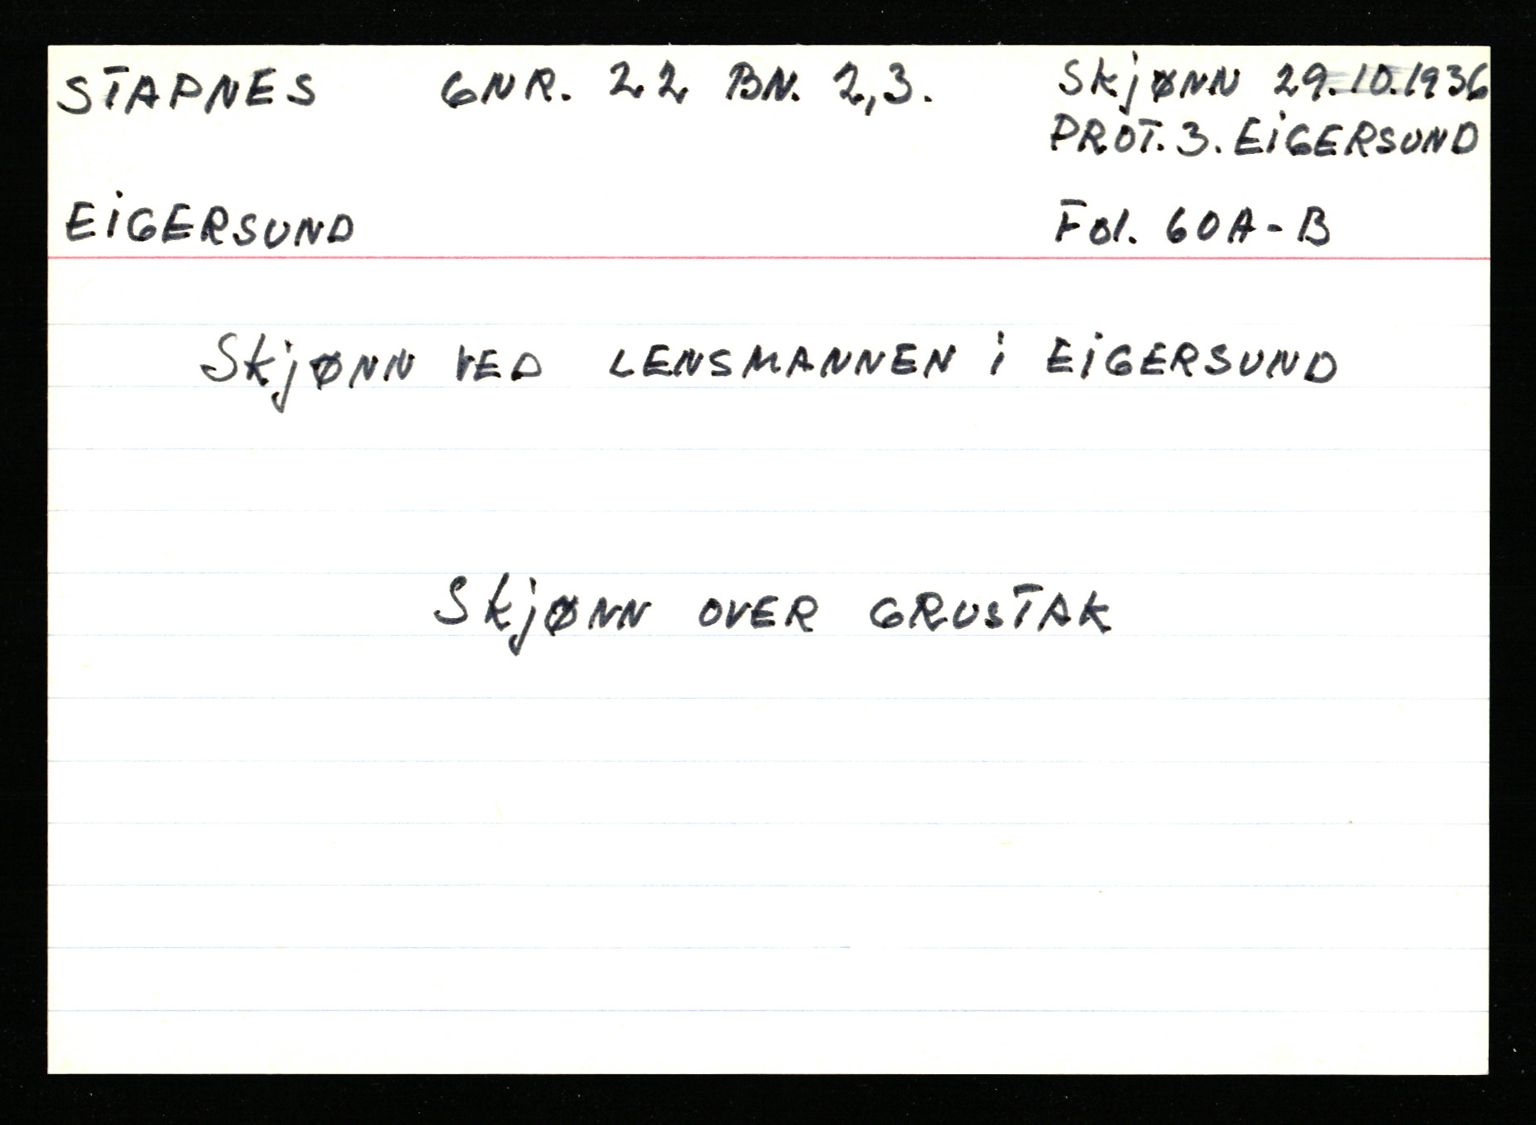 STAPNES GNR. 22 BN. 2,3. Skjønn 29.10.1936
PROT. 3. EIGERSUND
EIGERSUND Fol. 60A-B
Skjønn VED LENSMANNEN i EIGERSUND
Skjønn OVER GRUSTAK